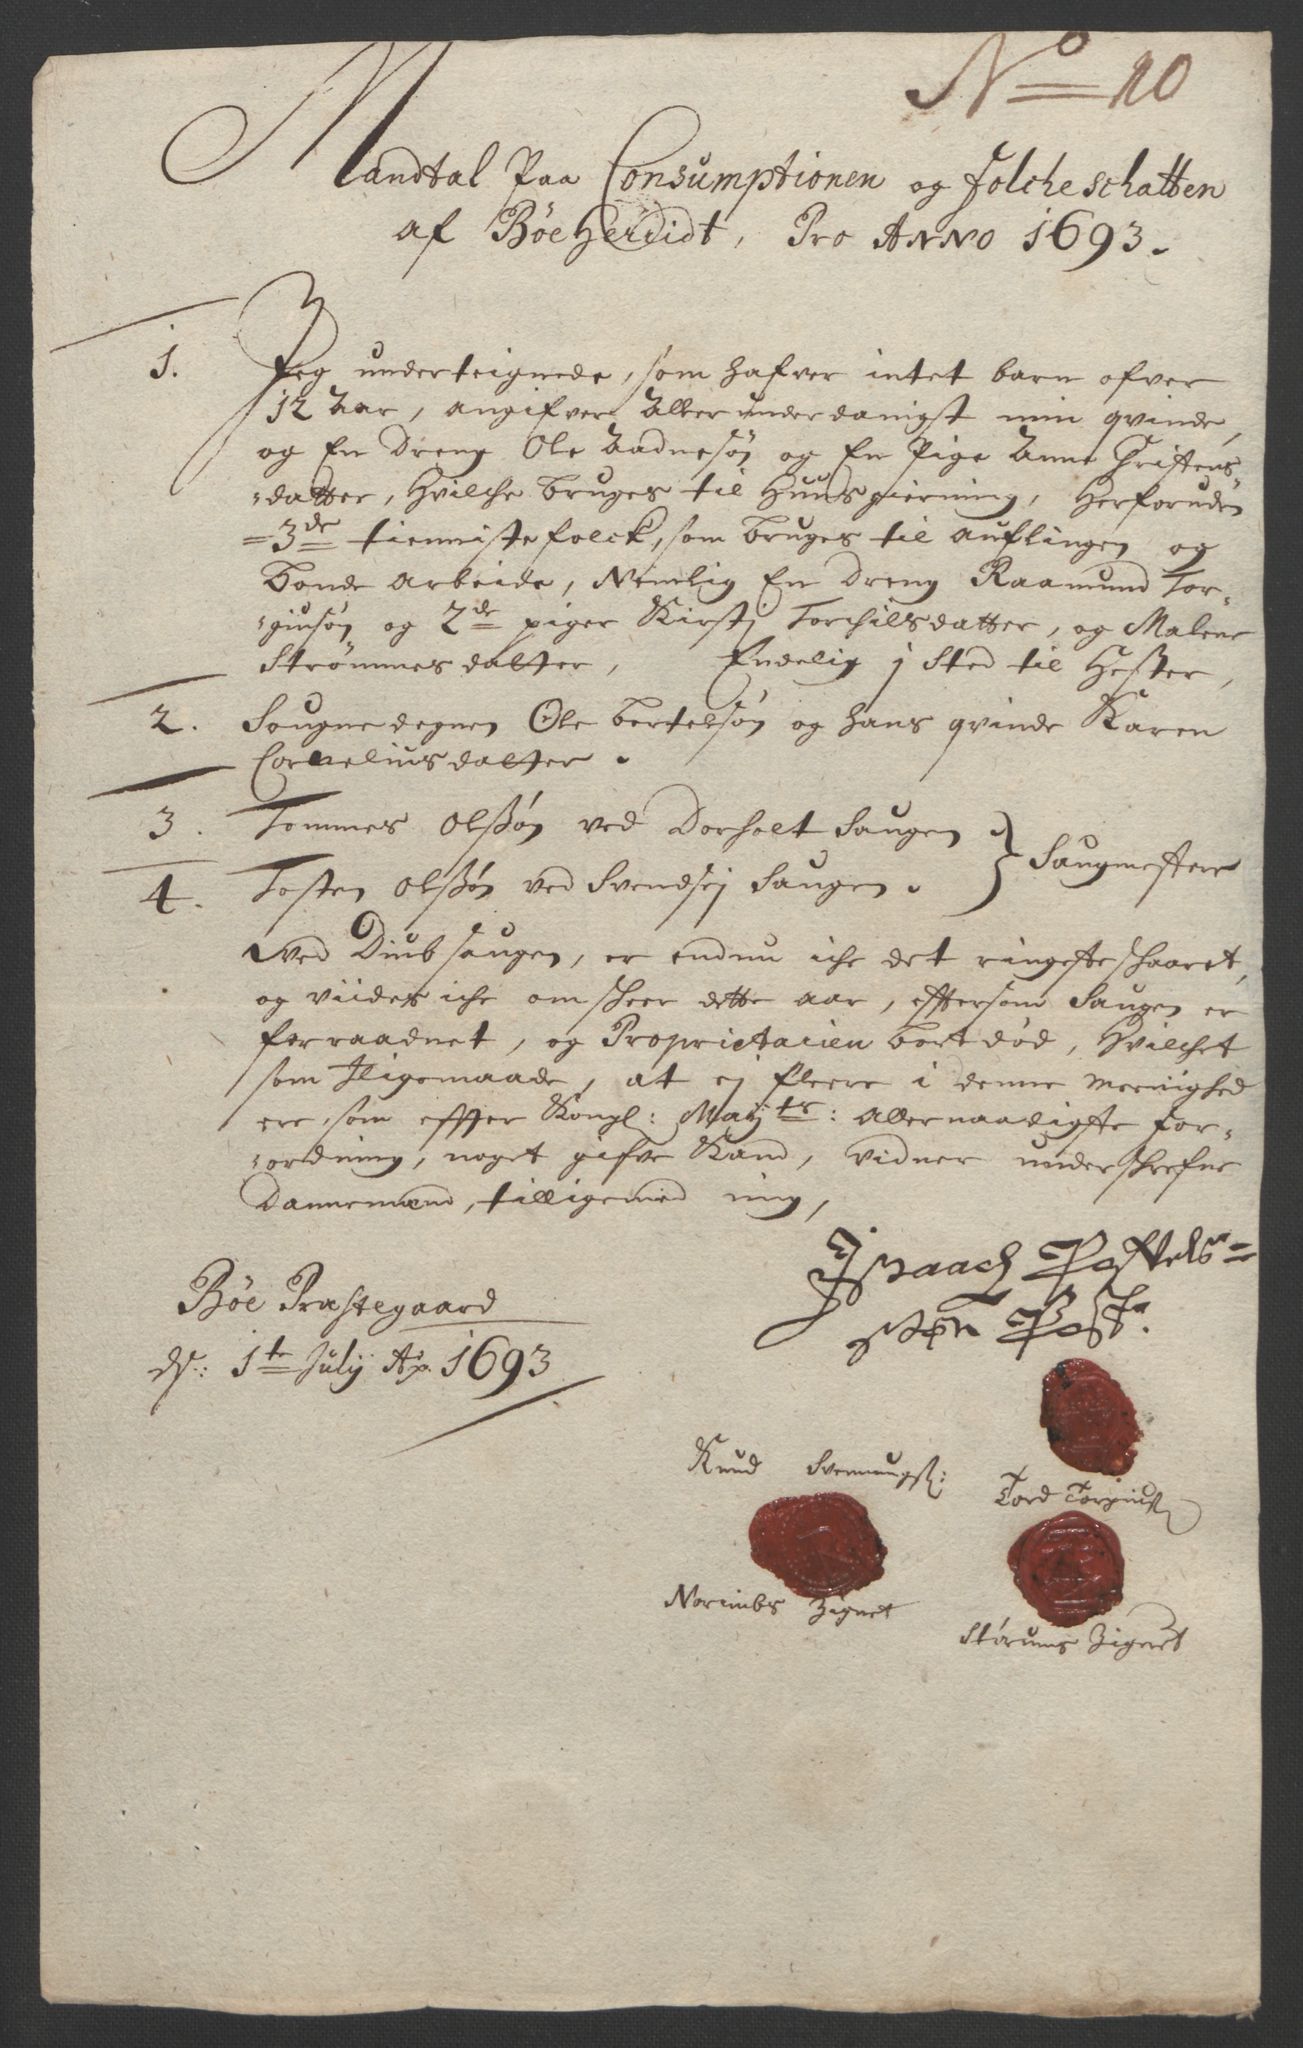 No 10
Mandtal Paa Consumptionen og Folcheschatten
af Bøe Herridt, Pro Anno 1693.
1. Jeg underteignede, som hafver intet barn ofver
12 Aar, angifver Allerunderdanigst min qvinde,
og En Dreng Ole Aadnesøn og En Pige Anne Christens-
datter, Hvilche bruges til Huusgierning, Herforuden
3de tienniste folck, som bruges til auflingen og
bonde arbeide, Nemlig En Dreng Raamund Tor-
giusøn og 2de piger Kirstj Torchilsdatter, og Malene
Strømmesdatter, Endelig j Sted til Hester,
2. Sougnedegnen Ole Bertelsøn og hans qvinde Karen
Corneliusdatter.
3. Tommes Olsßøn ved Dorholt Saugen } Saugmestere
4. Tosten Olsßøn ved Svendsej Saugen.
Ved Diubsaugen, er endnu iche det ringeste schaaret,
og viides iche om scheer dette aar, efftersom Saugen er
forraadnet, og Proprietarien bort død, Hvilchet
som Jligemaade, at ej fleere i denne meenighed
ere som effter Kongl: Maytts: Allernaadigste For-
ordning, noget gifve Kand, vidner underschrefne
Dannemænd, tilligemed mig,
Isaach Poffvels-
søn Post.
Bøe Præstegaard
ds: 1te Julij Ao. 1693
Knud Svennungs: Tord Torgius
Norimbs Zignet
Størums Zignet